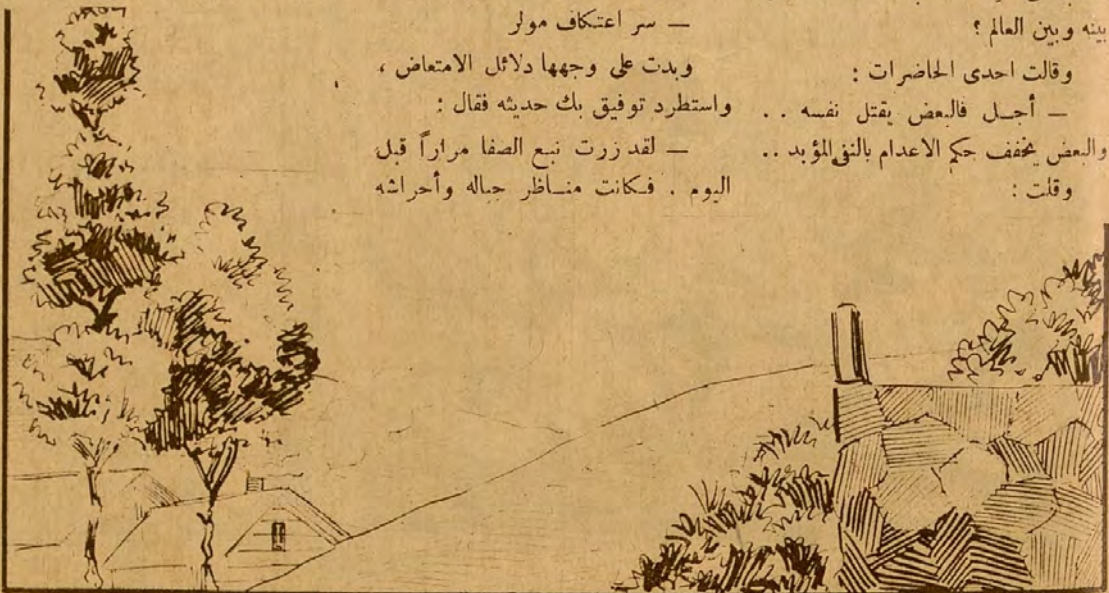 بينه وبين العالم ؟
وقالت احدى الحاضرات :
— أجل فالبعض يقتل نفسه . .
والبعض يخفف حكم الاعدام بالنفي المؤبد . .
وقلت :
— سر اعتكاف مولر
وبدت على وجهها دلائل الامتعاض ،
واستطرد توفيق بك حديثه فقال :
— لقد زرت نبع الصفا مراراً قبل
اليوم . فكانت مناظر جباله وأحراشه